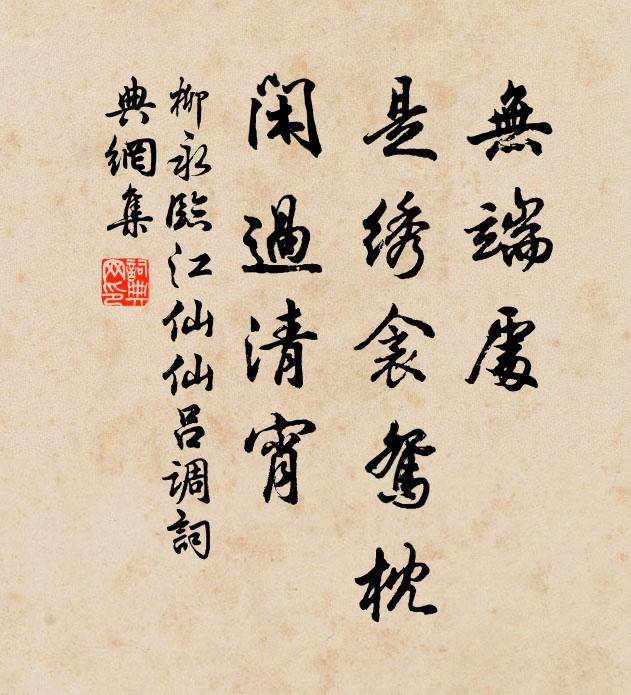 無端處
是绣衾鸳枕
閑過清宵
柳永臨江仙仙吕調詞
典網集
詞典网印